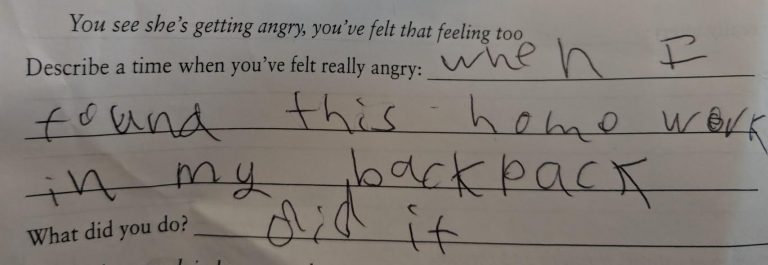 You see she's getting angry, you've felt that feeling too
Describe a time when you've felt really angry: when I
found this homo work
in my backpack
What did you do? did it